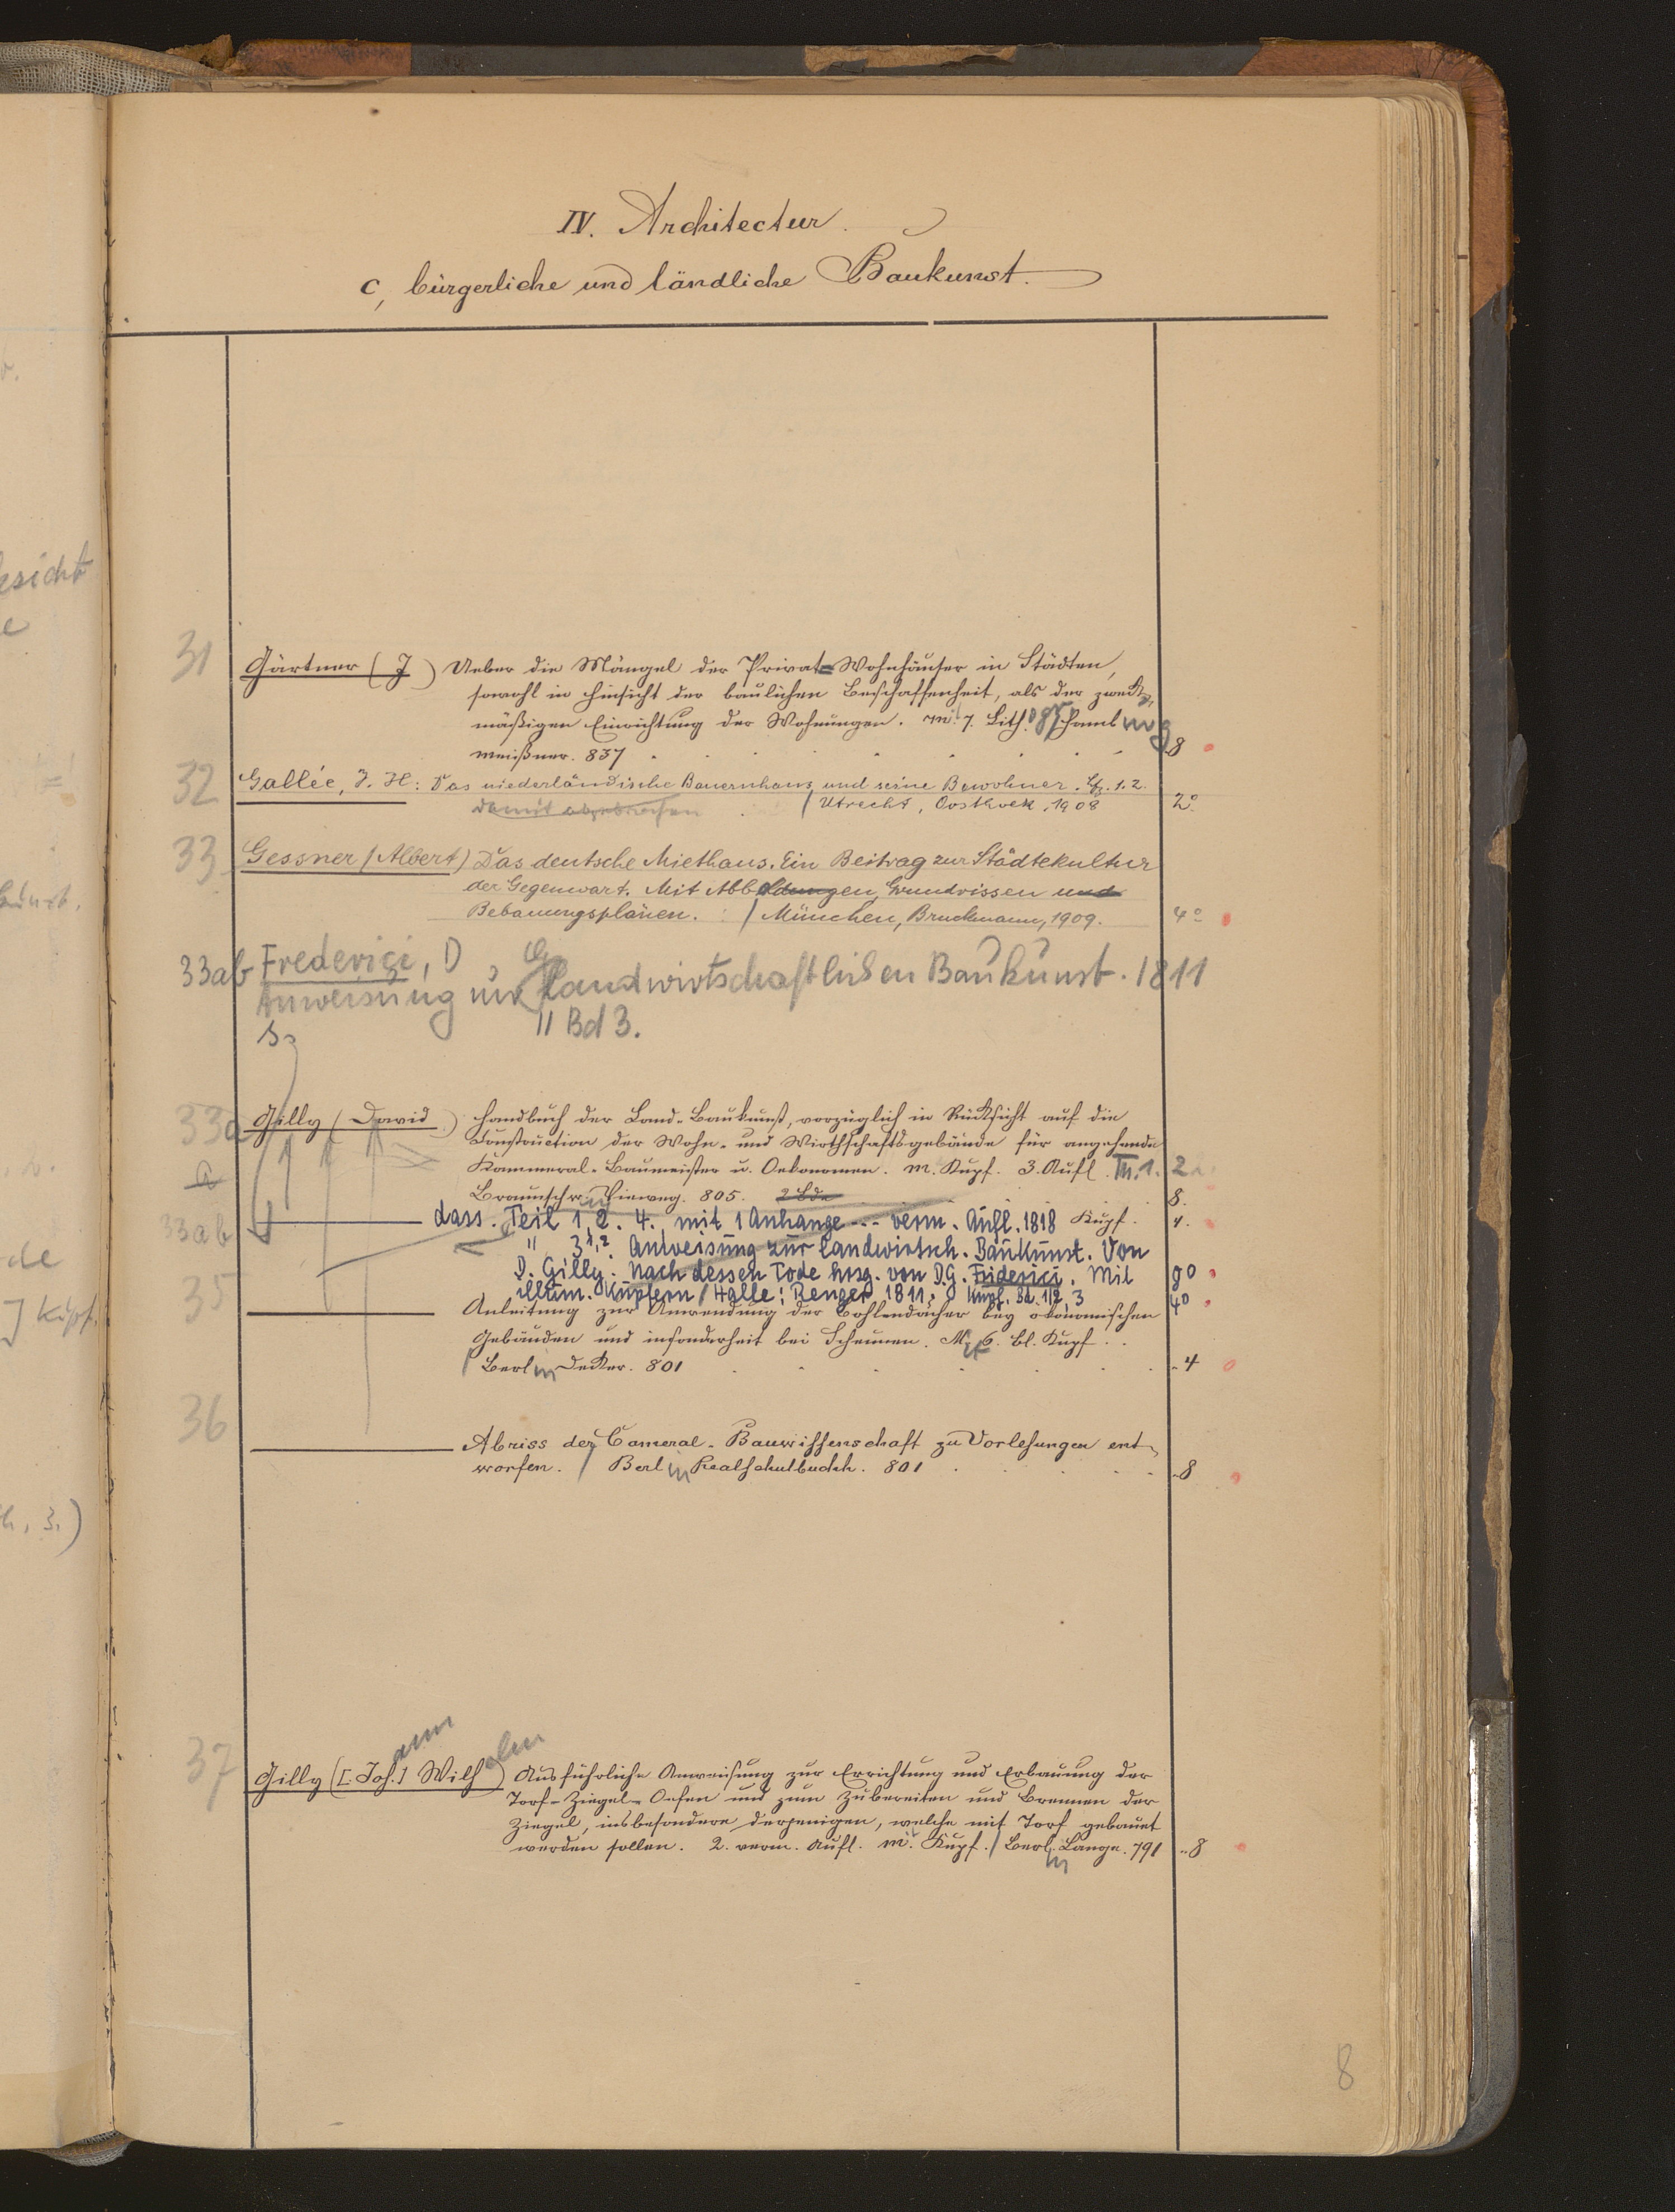 IV. Architectur.
c, bürgerliche und ländliche Baukunst.
31 Gärtner (J) Ueber die Mängel der Privat=Wohnhäuser in Städten,
sowohl in Hinsicht der baulichen Beschaffenheit, als der zweck=
mäßigen Einrichtung der Wohnungen. m. 7. Lith. Hamb
Meißner. 837 8
32 Gallée, J. H: Das niederländische Bauernhaus und seine Bewohner. Lfg. 1. 2.
/ Utrecht, Oosthoek, 1908 2°
33 Gessner (Albert) Das deutsche Miethaus. Ein Beitrag zur Städtekultur
der Gegenwart. Mit Abbildungen, Grundrissen und
Bebauungsplänen. / München, Bruckmann, 1909. 4°
33ab Frederici, D. G.
Anweisung zur landwirtschaftlichen Baukunst. 1811
" Bd 3.
33a Gilly (David) Handbuch der Land-Baukunst, vorzüglich in Rücksicht auf die
Construction der Wohn- und Wirthschaftsgebäude für angehende
a Kammeral-Baumeister u. Oekonomen. m. Kupf. 3. Aufl. Th. 1. 2
Braunschw. Vieweg. 805. 2 Bde 8.
33ab dass. Teil 1, 2. 4. mit 1 Anhange --- verm. Aufl. 1818 Kupf. 4.
" 3 1,2. Anweisung zur landwirtsch. Baukunst. Von
D. Gilly. Nach dessen Tode hrsg. von D. G. Friderici. Mit 8°
illum. Kupfern / Halle: Renger 1811. Kupf. Bd. 1/2, 3 4°
35 Anleitung zur Anwendung der Bohlendächer bey ökonomischen
Gebäuden und insonderheit bei Scheunen. M. 6. bl. Kupf.
/ Berlin Decker. 801 4
36 Abriss der Cameral-Bauwissenschaft zu Vorlesungen ent=
worfen. / Berlin Realschulbuchh. 801 8
37 Gilly ([: Joh.] Wilh) Ausführliche Anweisung zur Errichtung und Erbauung der
ann elm
Torf-Ziegel-Oefen und zum Zubereiten und Brennen der
Ziegel, insbesondere derjenigen, welche mit Torf gebauet
werden sollen. 2. verm. Aufl. m. Kupf. / Berlin Lange. 791 8
8